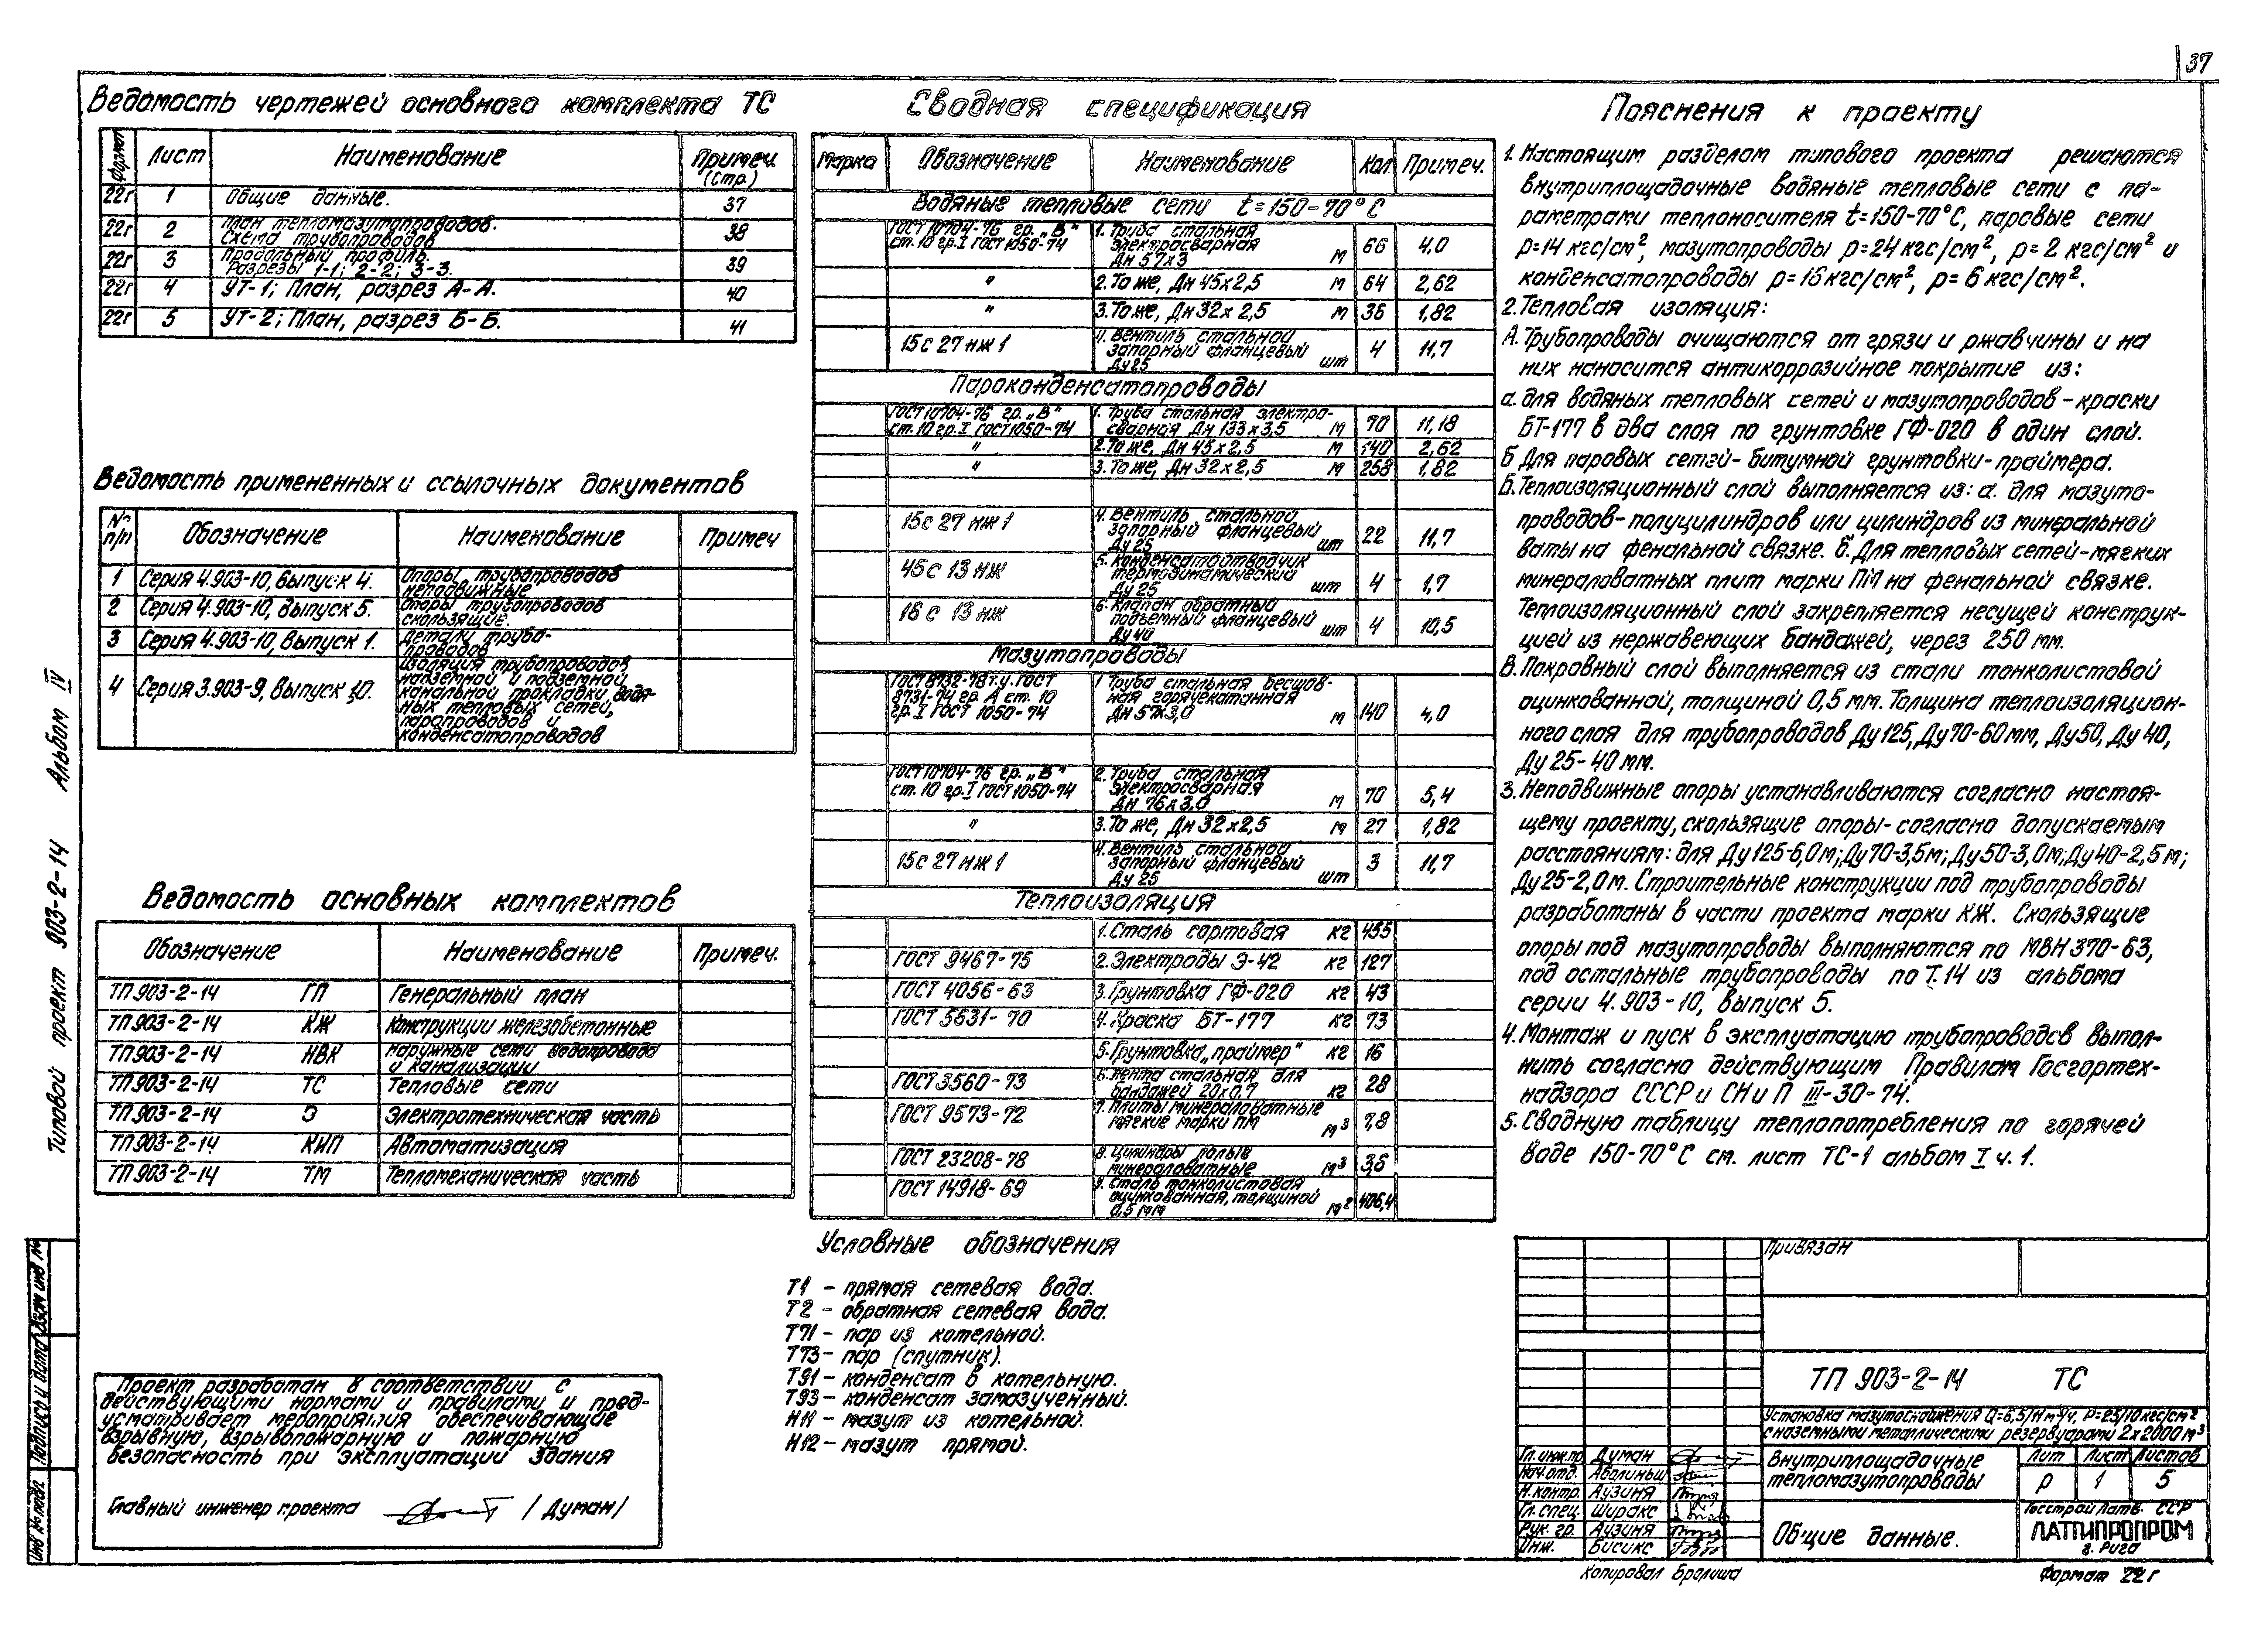 37
Ведомость чертежей основного комплекта ТС
Формат Лист Наименование Примеч. (стр.)
22г 1 Общие данные. 37
22г 2 План тепломазутопроводов. Схема трубопроводов 38
22г 3 Продольный профиль. Разрезы 1-1; 2-2; 3-3. 39
22г 4 УТ-1; План, разрез А-А. 40
22г 5 УТ-2; План, разрез Б-Б. 41
Ведомость примененных и ссылочных документов
№ п/п Обозначение Наименование Примеч
1 Серия 4.903-10, выпуск 4. Опоры трубопроводов неподвижные
2 Серия 4.903-10, выпуск 5. Опоры трубопроводов скользящие.
3 Серия 4.903-10, выпуск 1. Детали трубопроводов
4 Серия 3.903-9, выпуск 10. Изоляция трубопроводов
надземной и подземной
канальной прокладки водя-
ных тепловых сетей,
паропроводов и
конденсатопроводов
Ведомость основных комплектов
Обозначение Наименование Примеч.
ТП 903-2-14 ГП Генеральный план
ТП 903-2-14 КЖ Конструкции железобетонные
ТП 903-2-14 НВК Наружные сети водопровода и канализации
ТП 903-2-14 ТС Тепловые сети
ТП 903-2-14 Э Электротехническая часть
ТП 903-2-14 КИП Автоматизация
ТП 903-2-14 ТМ Тепломеханическая часть
Проект разработан в соответствии с
действующими нормами и правилами и пред-
усматривает мероприятия обеспечивающие
взрывную, взрывопожарную и пожарную
безопасность при эксплуатации здания
Главный инженер проекта /Думан/
Сводная спецификация
Марка Обозначение Наименование Кол Примеч.
Водяные тепловые сети t=150-70°С
ГОСТ 10704-76 гр. „В" ст. 10 гр. I ГОСТ 1050-74 1. Труба стальная электросварная Дн 57х3 м 66 4,0
" 2. То же, Дн 45х2,5 м 64 2,62
" 3. То же, Дн 32х2,5 м 36 1,82
15с 27 нж 1 4. Вентиль стальной запорный фланцевый Ду 25 шт 4 11,7
Пароконденсатопроводы
ГОСТ 10704-76 гр. „В" ст. 10 гр. I ГОСТ 1050-74 1. Труба стальная электро-сварная Дн 133х3,5 м 70 11,18
" 2. То же, Дн 45х2,5 м 140 2,62
" 3. То же, Дн 32х2,5 м 258 1,82
15с 27 нж 1 4. Вентиль стальной запорный фланцевый Ду 25 шт 22 11,7
45с 13 нж 5. Конденсатоотводчик термодинамический Ду 25 шт 4 1,7
16с 13 нж 6. Клапан обратный подъемный фланцевый Ду 40 шт 4 10,5
Мазутопроводы
ГОСТ 8732-78 т.у. ГОСТ 8731-74 гр. А ст. 10 гр. I ГОСТ 1050-74 1 Труба стальная бесшов-ная горячекатанная Дн 57х3,0 м 140 4,0
ГОСТ 10704-76 гр. „В" ст. 10 гр. I ГОСТ 1050-74 2. Труба стальная электросварная Дн 76х3,0 м 70 5,4
" 3. То же, Дн 32х2,5 м 27 1,82
15с 27 нж 1 4. Вентиль стальной запорный фланцевый Ду 25 шт 3 11,7
Теплоизоляция
1. Сталь сортовая кг 455
ГОСТ 9467-75 2. Электроды Э-42 кг 127
ГОСТ 4056-63 3. Грунтовка ГФ-020 кг 43
ГОСТ 5631-70 4. Краска БТ-177 кг 73
5. Грунтовка „праймер" кг 16
ГОСТ 3560-73 6. Лента стальная для бандажей 20х0,7 кг 28
ГОСТ 9573-72 7. Плиты минераловатные мягкие марки ПМ м³ 7,8
ГОСТ 23208-78 8. Цилиндры полые минераловатные м³ 3,6
ГОСТ 14918-69 9. Сталь тонколистовая оцинкованная, толщиной 0,5 мм м² 406,4
Условные обозначения
Т1 - прямая сетевая вода.
Т2 - обратная сетевая вода.
Т71 - пар из котельной.
Т73 - пар (спутник).
Т91 - конденсат в котельную.
Т93 - конденсат замазученный.
Н11 - мазут из котельной.
Н12 - мазут прямой.
Пояснения к проекту
1. Настоящим разделом типового проекта решаются
внутриплощадочные водяные тепловые сети с па-
раметрами теплоносителя t=150-70°С, паровые сети
р=14 кгс/см², мазутопроводы р=24 кгс/см², р=2 кгс/см² и
конденсатопроводы р=16 кгс/см², р=6 кгс/см².
2. Тепловая изоляция:
А. Трубопроводы очищаются от грязи и ржавчины и на
них наносится антикоррозийное покрытие из:
а. для водяных тепловых сетей и мазутопроводов - краски
БТ-177 в два слоя по грунтовке ГФ-020 в один слой.
б Для паровых сетей - битумной грунтовки-праймера.
Б. Теплоизоляционный слой выполняется из: а. для мазуто-
проводов - полуцилиндров или цилиндров из минеральной
ваты на фенальной связке. б. Для тепловых сетей - мягких
минераловатных плит марки ПМ на фенальной связке.
Теплоизоляционный слой закрепляется несущей конструк-
цией из нержавеющих бандажей, через 250 мм.
В. Покровный слой выполняется из стали тонколистовой
оцинкованной, толщиной 0,5 мм. Толщина теплоизоляцион-
ного слоя для трубопроводов Ду 125, Ду 70-60 мм, Ду 50, Ду 40,
Ду 25-40 мм.
3. Неподвижные опоры устанавливаются согласно настоя-
щему проекту, скользящие опоры - согласно допускаемым
расстояниям: для Ду 125-6,0 м; Ду 70-3,5 м; Ду 50-3,0 м; Ду 40-2,5 м;
Ду 25-2,0 м. Строительные конструкции под трубопроводы
разработаны в части проекта марки КЖ. Скользящие
опоры под мазутопроводы выполняются по МВН 370-63,
под остальные трубопроводы по Т.14 из альбома
серии 4.903-10, выпуск 5.
4. Монтаж и пуск в эксплуатацию трубопроводов выпол-
нить согласно действующим Правилам Госгортех-
надзора СССР и СН и П III-30-74.
5. Сводную таблицу теплопотребления по горячей
воде 150-70°С см. лист ТС-1 альбом I ч. 1.
Привязан
ТП 903-2-14 ТС
Установка мазутоснабжения Q=6,5/11 м³/ч, Р=25/10 кгс/см²
с наземными металлическими резервуарами 2х2000 м³
Гл. инж. пр. Думан
Нач. отд. Аболиньш
Н. контр. Аузиня
Гл. спец. Ширакс
Рук. гр. Аузиня
Инж. Бисикс
Внутриплощадочные тепломазутопроводы
Лит Лист Листов
Р 1 5
Общие данные.
Госстрой Латв. ССР
ЛАТГИПРОПРОМ
г. Рига
Копировал Бролиша
Формат 22г
Типовой проект 903-2-14 Альбом IV
Инв № подл Подпись и дата Взам инв №